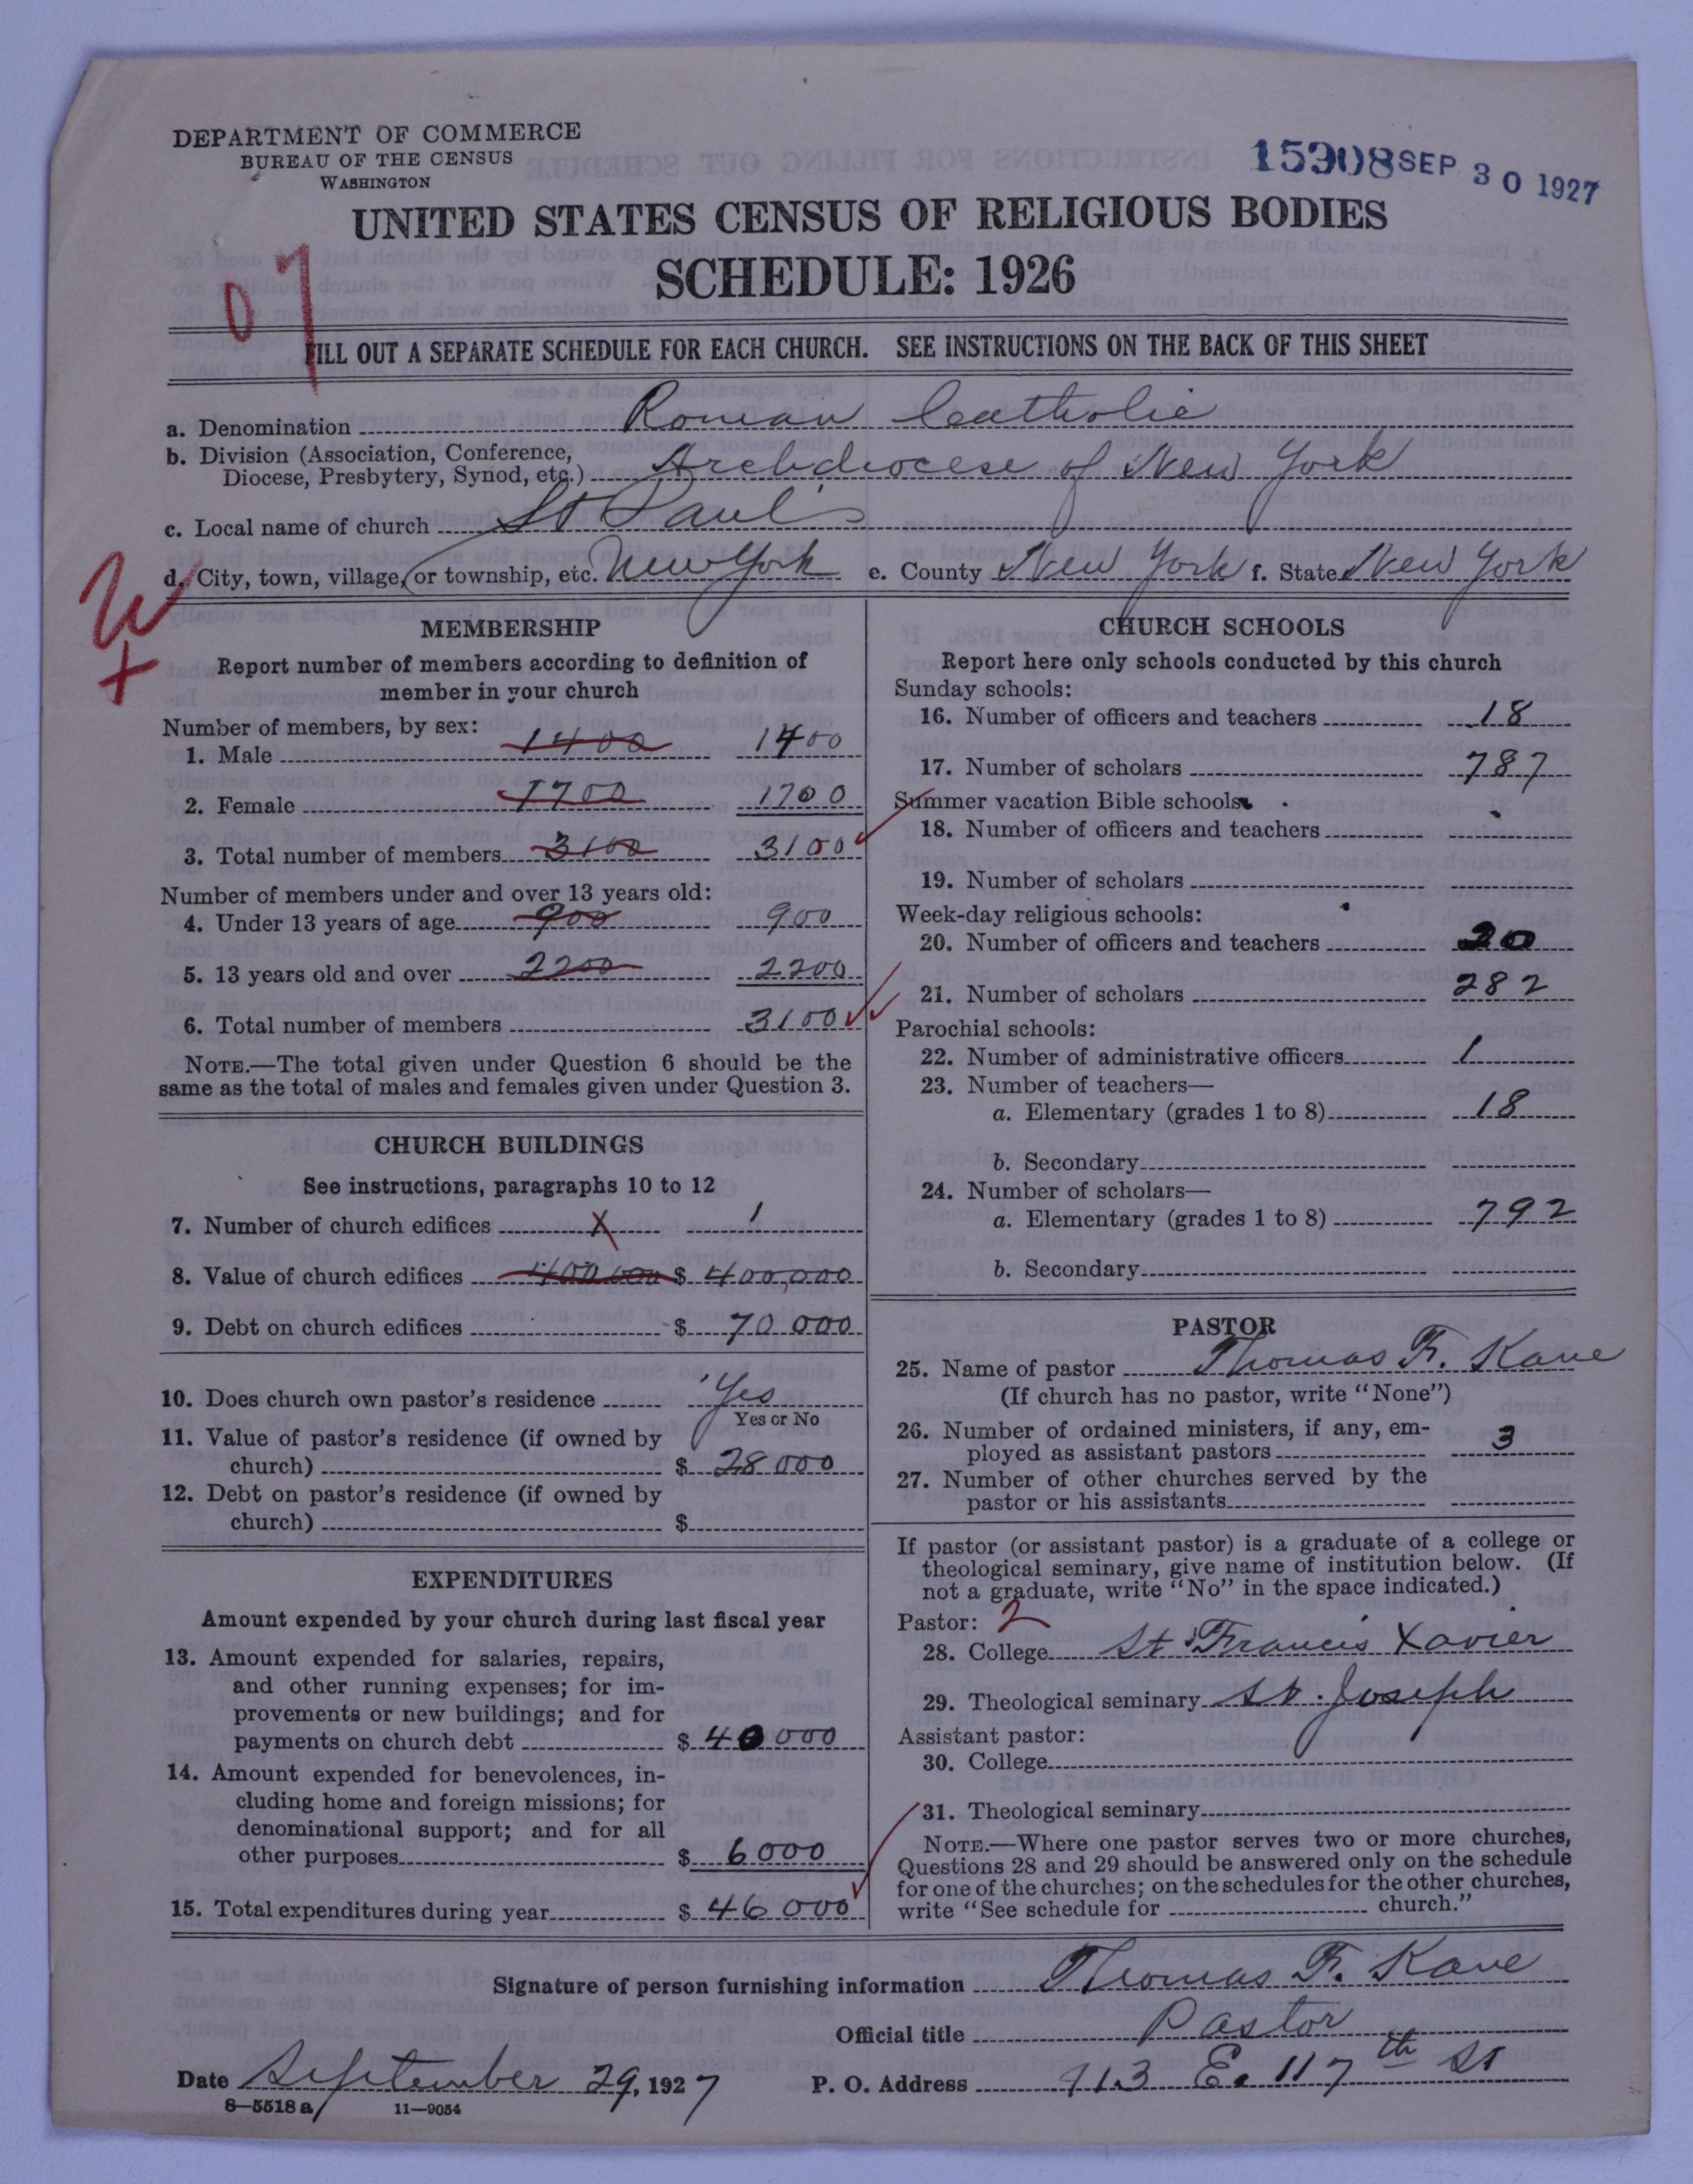 DEPARTMENT OF COMMERCE
BUREAU OF THE CENSUS
WASHINGTON
15308 SEP 30 1927
UNITED STATES CENSUS OF RELIGIOUS BODIES
SCHEDULE: 1926
07
FILL OUT A SEPARATE SCHEDULE FOR EACH CHURCH. SEE INSTRUCTIONS ON THE BACK OF THIS SHEET
a. Denomination Roman Catholic
b. Division (Association, Conference, Diocese, Presbytery, Synod, etc.) Archdiocese of New York
c. Local name of church St Paul's
d. City, town, village, or township, etc. New York e. County New York f. State New York
MEMBERSHIP
Report number of members according to definition of
member in your church
Number of members, by sex:
1. Male 1400 1400
2. Female 1700 1700
3. Total number of members 3100 3100
Number of members under and over 13 years old:
4. Under 13 years of age 900 900
5. 13 years old and over 2200 2200
6. Total number of members 3100
NOTE.—The total given under Question 6 should be the
same as the total of males and females given under Question 3.
CHURCH BUILDINGS
See instructions, paragraphs 10 to 12
7. Number of church edifices X 1
8. Value of church edifices 400,000 $ 400,000
9. Debt on church edifices $ 70 000
10. Does church own pastor's residence Yes
Yes or No
11. Value of pastor's residence (if owned by
church) $ 28 000
12. Debt on pastor's residence (if owned by
church) $
EXPENDITURES
Amount expended by your church during last fiscal year
13. Amount expended for salaries, repairs,
and other running expenses; for im-
provements or new buildings; and for
payments on church debt $ 40 000
14. Amount expended for benevolences, in-
cluding home and foreign missions; for
denominational support; and for all
other purposes $ 6000
15. Total expenditures during year $ 46 000
CHURCH SCHOOLS
Report here only schools conducted by this church
Sunday schools:
16. Number of officers and teachers 18
17. Number of scholars 787
Summer vacation Bible schools:
18. Number of officers and teachers
19. Number of scholars
Week-day religious schools:
20. Number of officers and teachers 20
21. Number of scholars 282
Parochial schools:
22. Number of administrative officers 1
23. Number of teachers—
a. Elementary (grades 1 to 8) 18
b. Secondary
24. Number of scholars—
a. Elementary (grades 1 to 8) 792
b. Secondary
PASTOR
25. Name of pastor Thomas F. Kane
(If church has no pastor, write "None")
26. Number of ordained ministers, if any, em-
ployed as assistant pastors 3
27. Number of other churches served by the
pastor or his assistants
If pastor (or assistant pastor) is a graduate of a college or
theological seminary, give name of institution below. (If
not a graduate, write "No" in the space indicated.)
Pastor: 2
28. College St Francis Xavier
29. Theological seminary St. Joseph
Assistant pastor:
30. College
31. Theological seminary
NOTE.—Where one pastor serves two or more churches,
Questions 28 and 29 should be answered only on the schedule
for one of the churches; on the schedules for the other churches,
write "See schedule for church."
Signature of person furnishing information Thomas F. Kane
Official title Pastor
Date September 29, 1927 P. O. Address 113 E. 117th St
8—5518 a 11—9054